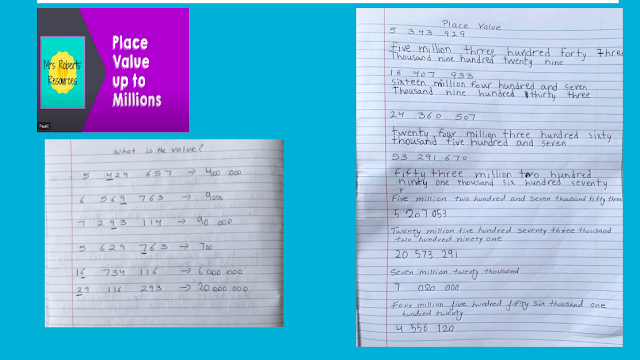 Mrs Roberts'
Resources
Place
Value
up to
Millions
What is the value?
5 429 657 → 400 000
6 569 763 → 9000
7 293 114 → 90 000
5 629 763 → 700
16 734 116 → 6 000 000
29 116 293 → 20 000 000
Place Value
5 343 929
five million three hundred forty three
thousand nine hundred twenty nine
16 407 933
sixteen million four hundred and seven
thousand nine hundred thirty three
24 360 507
twenty four million three hundred sixty
thousand five hundred and seven
53 291 670
fifty three million two hundred
ninety one thousand six hundred seventy
Five million two hundred and seven thousand fifty three
5 207 053
Twenty million five hundred seventy three thousand
two hundred ninety one
20 573 291
Seven million twenty thousand
7 020 000
Four million five hundred fifty six thousand one
hundred twenty
4 556 120